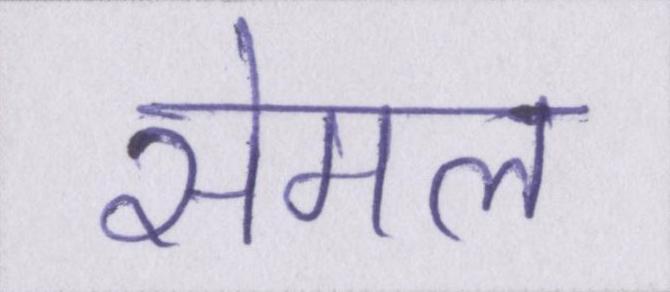 सेमल